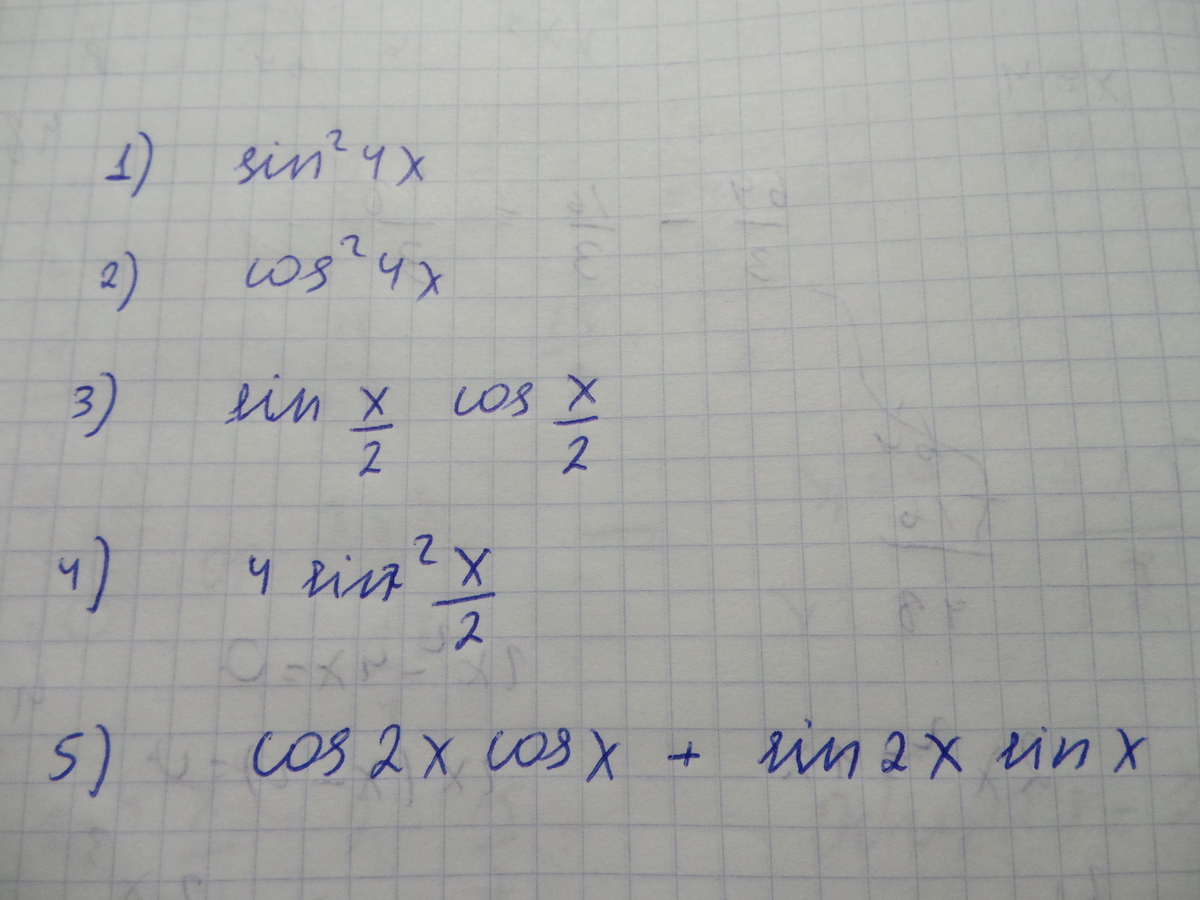 1) sin² 4x
2) cos² 4x
3) sin x/2 cos x/2
4) 4 sin² x/2
5) cos 2x cos x + sin 2x sin x